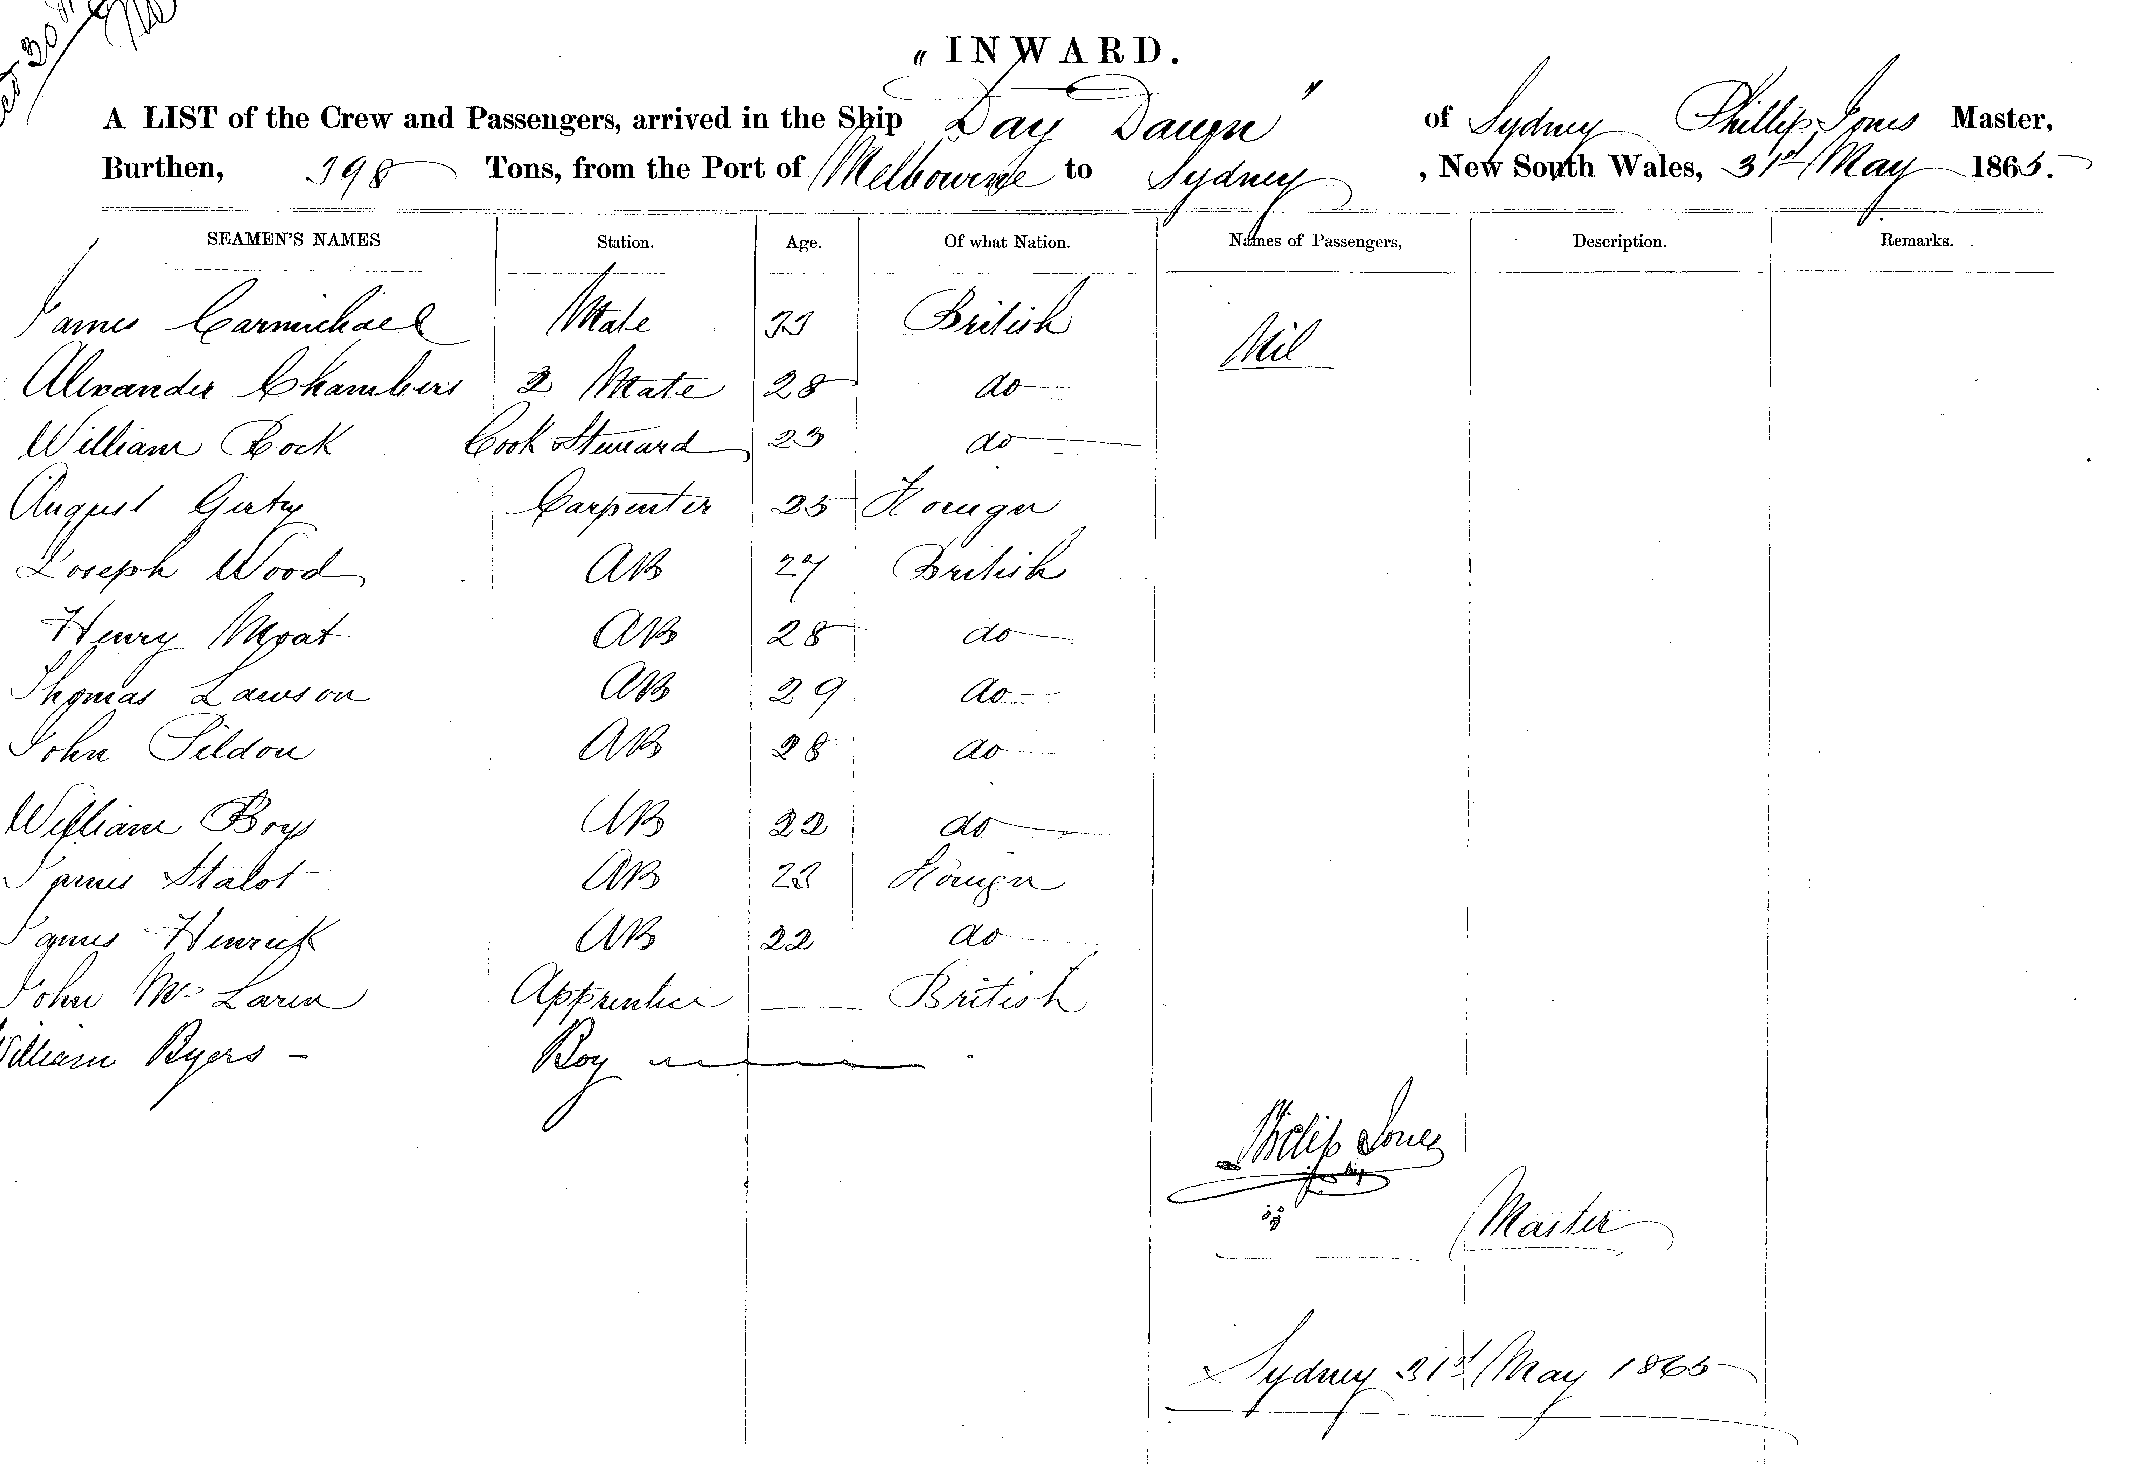 30
"INWARD.
A LIST of the Crew and Passengers, arrived in the Ship "Day Dawn" of Sydney Phillip Jones Master,
Burthen, 398 Tons, from the Port of Melbourne to Sydney, New South Wales, 31st May 1865.
SEAMEN'S NAMES Station. Age. Of what Nation. Names of Passengers, Description. Remarks.
James Carmichael Mate 33 British Nil
Alexander Chambers 2 Mate 28 do
William Cock Cook Steward 23 do
August Carpenter 25 Foreign
Joseph Wood AB 27 British
Henry Moat AB 28 do
Thomas Lawson AB 29 do
John AB 28 do
William Boys AB 22 do
James Stalot AB 23 Foreign
James Henrick AB 22 do
John Mc Laren Apprentice — British
William Byers - Boy
Philip Jones
Master
Sydney 31st May 1865